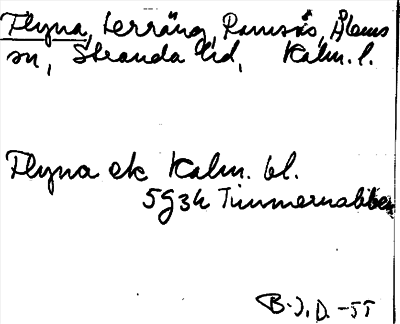 Flyna, terräng, Ramsås, Ålems
sn, Stranda hd, Kalm. l.
Flyna ek Kalm. bl.
5g3h Timmernabben
B.J.D. -55